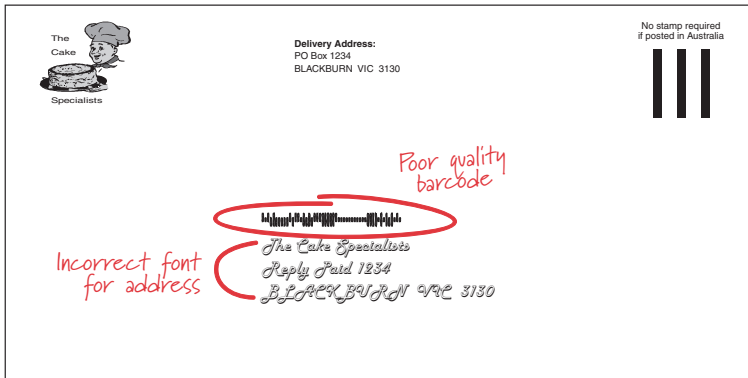 The
Cake
Specialists
Delivery Address:
PO Box 1234
BLACKBURN VIC 3130
No stamp required
if posted in Australia
Poor quality
barcode
Incorrect font
for address
The Cake Specialists
Reply Paid 1234
BLACKBURN VIC 3130